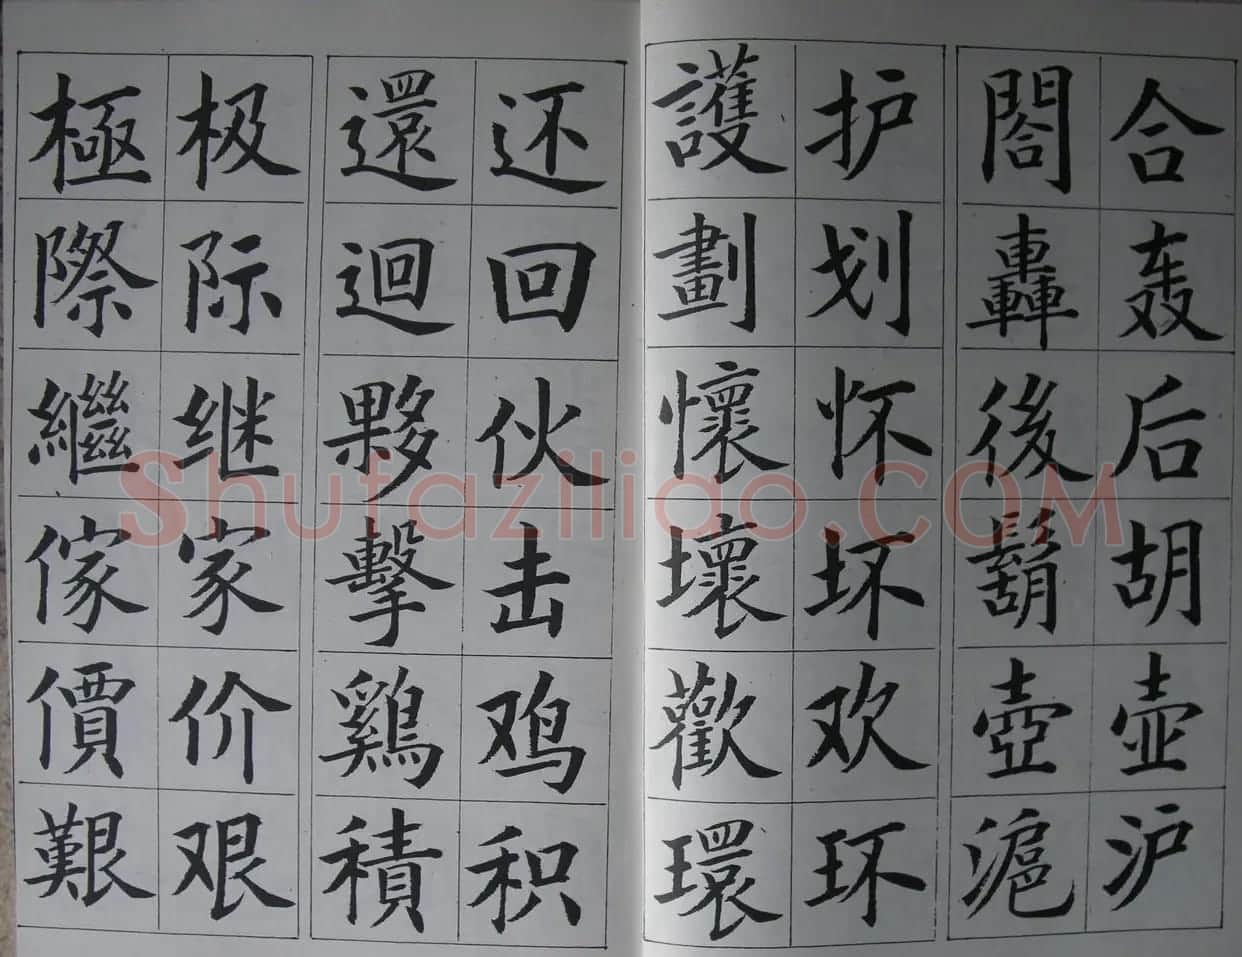 合轰后胡壶沪
閤轟後鬍壺滬
护划怀坏欢环
護劃懷壞歡環
还回伙击鸡积
還迴夥擊鷄積
极际继家价艰
極際繼傢價艱
Shufaziliao.COM